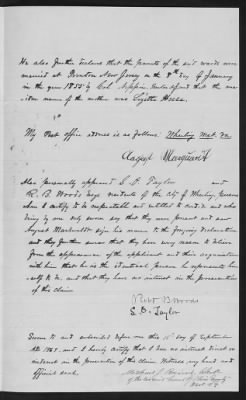 He also further declares that the parents of the ... wards were
married at Trenton New Jersey on the 9th day of January
in the year 1855 by Col ... that the ma-
iden name of the mother was Lizette Hess.
My Post office address is as follows: Wheeling West Va
August Marquardt
Also personally appeared S. D. Taylor and
R. B. Woods residents of the City of Wheeling
to be respectable and entitled to credit and who
being by me duly sworn say that they were present and saw
August Marquardt sign his name to the foregoing declaration
and they further swear that they have every reason to believe
from the appearance of the applicant and their acquaintance
with him that he is the identical person he represents him
self to be and that they have no interest in the prosecution
of this claim.
Robt B Woods
S. D. Taylor
Sworn to and subscribed before me this day of September
and I hereby certify that I have no interest direct or
indirect in the prosecution of this claim. Witness my hand and
official seal.
Clerk
of the County